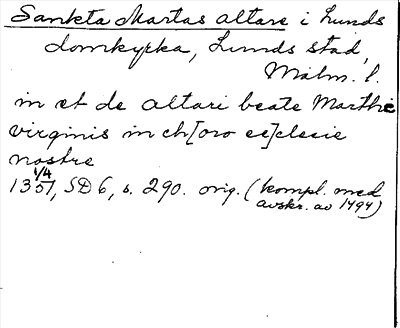 Sankta Martas altare i Lunds
domkyrka, Lunds stad,
Malm. l.
in et de altari beate Marthe
virginis in ch[oro ec]clesie
nostre
1/4
1351, SD 6, s. 290. orig. (kompl. med
avskr. av 1494)